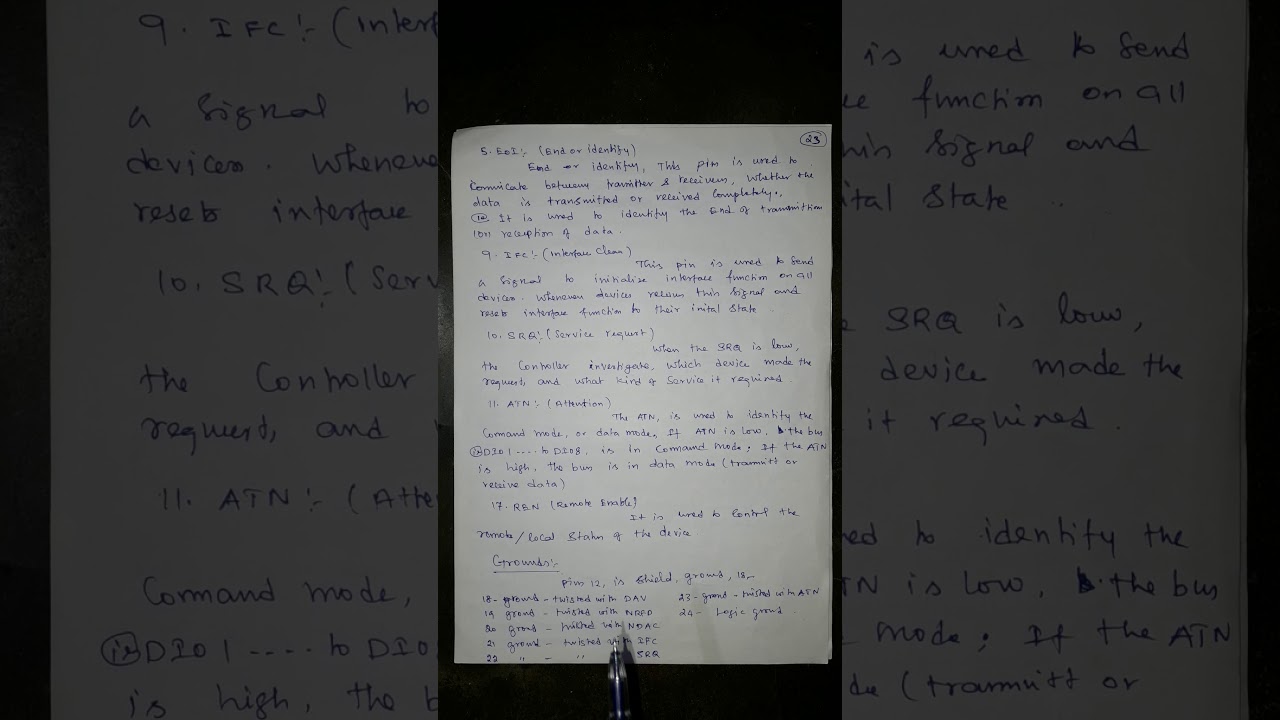 23
5. EOI:- (End or identify)
End or identify, This pin is used to
Comnicate between tranmitter & receivers, whether the
data is transmitted or received completely.
It is used to identify the End of transmittion
reception of data.
9. IFC:- (Interface Clear)
This pin is used to Send
a signal to initialise interface function on all
devices. Whenever devices this signal and
resets interface function to their inital State
10. SRQ:- (Service request)
When the SRQ is low,
the Controller investigate, which device made the
request, and what kind of Service it required.
11. ATN:- (Attention)
The ATN, is used to identity the
Command mode, or data mode, If ATN is low, the bus
DIO1 .... to DIO8, is in Command Mode; If the ATN
is high, the bus is in data mode (transmitt or
receive data)
17. REN (Remote Enable)
It is used to Control the
remote/local Status of the device
Grounds:-
Pin 12, is shield, ground, 18-
18- ground - twisted with DAV 23- ground - twisted with ATN
19 ground - twisted with NRFD 24- Logic ground.
20 ground - twisted with NDAC
21 ground - twisted with IFC
22 " - " SRQ